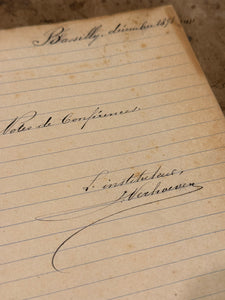 Bassilly, décembre
Notes de Conférences
L'instituteur,
J. Verhoeven